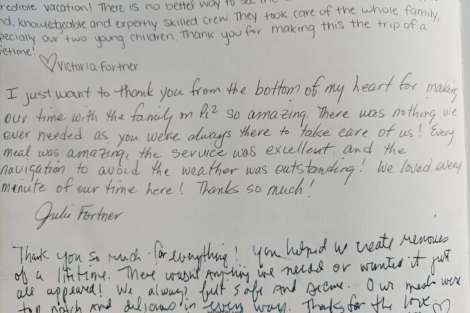 credible vacation! There is no better way to see the
nd, knowledgable and expertly skilled crew. They took care of the whole family,
pecially our two young children. Thank you for making this the trip of a
fetime!
♡Victoria Fortner
I just want to thank you from the bottom of my heart for making
our time with the family on Pi² so amazing. There was nothing we
ever needed as you were always there to take care of us! Every
meal was amazing, the service was excellent and the
navigation to avoid the weather was outstanding! We loved every
minute of our time here! Thanks so much!
Julie Fortner
Thank you so much for everything! You helped us create memories
of a lifetime. There wasn't anything we needed or wanted it just
all appeared! We always felt safe and secure. Our meals were
top notch and delicious in every way. Thanks for the love ♡